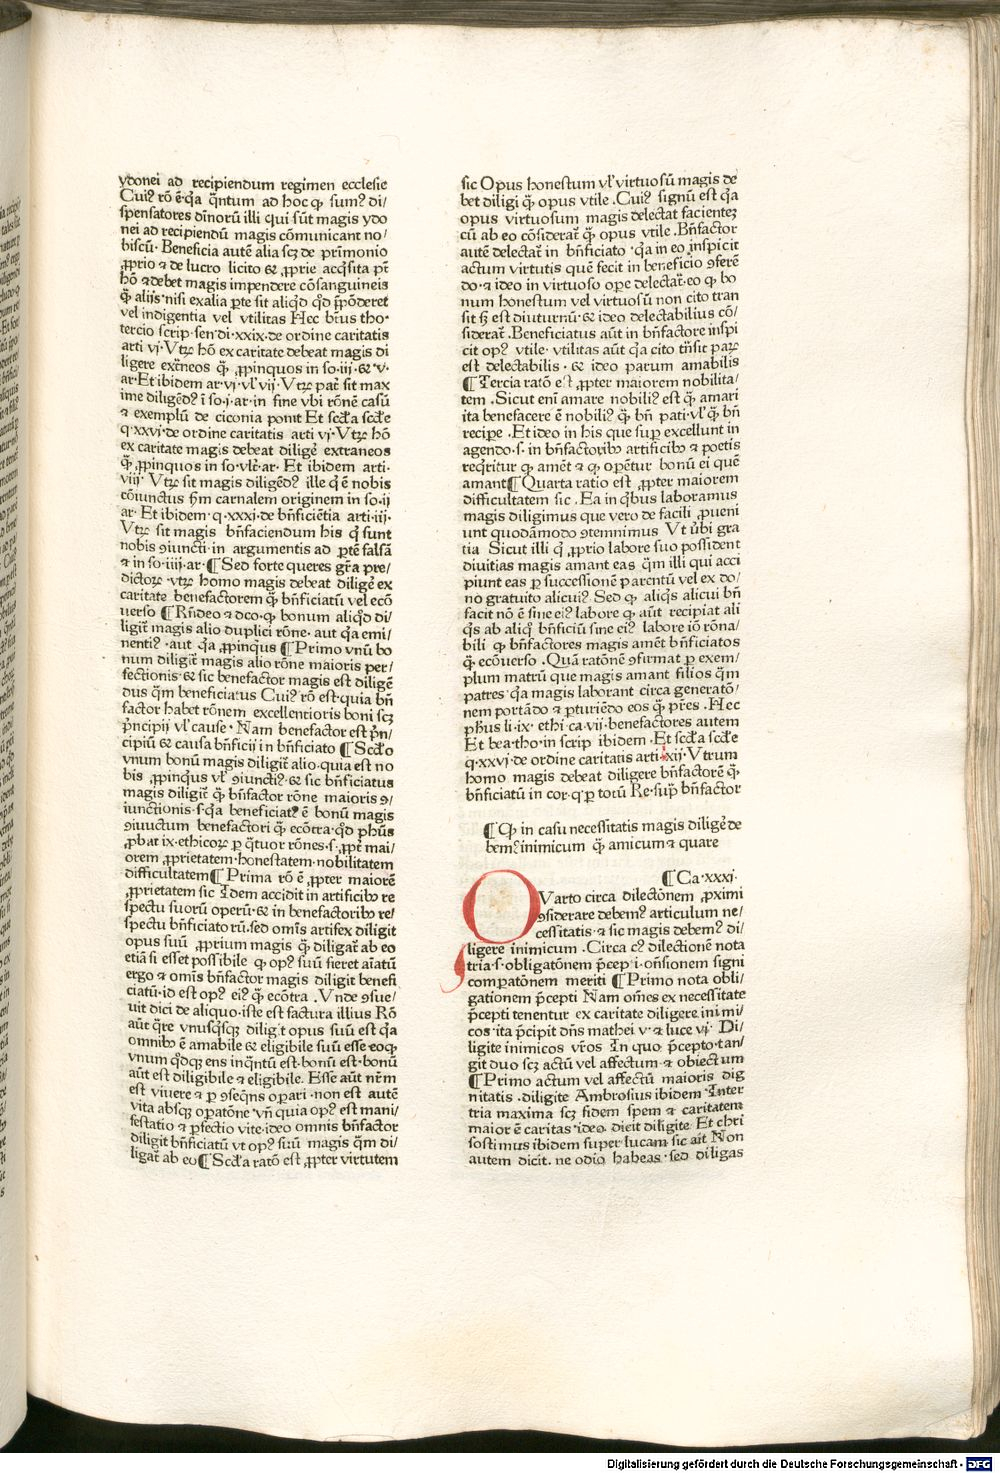 ydonei ad recipiendum regimen ecclesie
Cuiꝰ rō ē q̄a q̄ntum ad hoc ꝙ sumꝰ di/
spensatores dīnorū illi qui sūt magis ydo
nei ad recipiendū magis cōmunicant no/
biscū· Beneficia autē alia scꝫ de pr̄imonio
ꝓprio ⁊ de lucro licito & ꝓprie acq̄sita pt̄
hō ⁊ debet magis impendere cōsanguineis
q̄ʒ aliis· nisi exalia ꝑte sit aliq̄d q̄d p̄pōderet
vel indigentia vel vtilitas Hec btūs tho·
tercio scrip·sen·di·xxix·de ordine caritatis
arti vj· Vtꝝ hō ex caritate debeat magis di
ligere ext̄neos q̄ʒ ꝓpinquos in so·iij·&·v·
ar·Et ibidem ar·vj·vl̓ vij·Vtꝝ pat̄ sit max
ime diligēdꝰ ī so·j·ar·in fine vbi rōnē casū
⁊ exemplū de ciconia ponit Et scd̄a scd̄e
q·xxvj·de ordine caritatis arti vj·Vtꝝ hō
ex caritate magis debeat diligē extraneos
q̄ʒ ꝓpinquos in so·vlt̄·ar· Et ibidem arti·
viij· Vtꝝ sit magis diligēdꝰ ille q̄ ē nobis
cōiunctus ẜm carnalem originem in so·ij
ar· Et ibidem·q·xxxj·de bn̄ficiētia arti·iij·
Vtꝝ sit magis bn̄faciendum his q̄ sunt
nobis ꝯiuncti·in argumentis ad ꝑtē falsā
⁊ in so·iiij·ar·¶Sed forte queres gr̄a pre/
dictoꝝ·vtꝝ homo magis debeat diligē ex
caritate benefactorem q̄ʒ bn̄ficiatū vel ecō
uerso ¶Rn̄deo ⁊ dco·ꝙ bonum aliq̄d di/
ligit̄ magis alio duplici rōne· aut q̄a emi/
nentiꝰ·aut q̄a ꝓpinqus ¶Primo vnū bo
num diligit̄ magis alio rōne maioris per/
fectionis·& sic benefactor magis est diligē
dus q̄m beneficiatus Cuiꝰ rō est·quia bn̄
factor habet rōnem excellentioris boni scꝫ
p̄ncipii vl̓ cause· Nam benefactor est p̄n/
cipiū & causa bn̄ficij in bn̄ficiato ¶Scd̄o
vnum bonū magis diligit̄ alio·quia est no
bis ꝓpinq̄us vl̓ ꝯiunctiꝰ·& sic bn̄ficiatus
magis diligit̄ q̄ʒ bn̄factor rōne maioris ꝯ/
iunctionis·s·q̄a beneficiatꝰ ē bonū magis
ꝯiuuctum benefactori q̄ʒ ecōtra·q̄d ph̄us
ꝓbat ix·ethicoꝝ ꝑ q̄tuor rōnes·s·ꝓpt̄ mai/
orem ꝓprietatem·honestatem·nobilitatem
difficultatem¶Prima rō ē ꝓpter maiorē
ꝓprietatem sic Idem accidit in artificibꝰ re
spectu suorū operū·& in benefactoribꝰ re/
spectu bn̄ficiato rū·sed omīs artifex diligit
opus suū ꝓprium magis q̄ʒ diligat̄ ab eo
etiā si esset possibile ꝙ opꝰ suū fieret aīatū
ergo ⁊ omīs bn̄factor magis diligit benefi
ciatū·id est opꝰ eiꝰ q̄ʒ ecōtra .Vnde ꝯsue/
uit dici de aliquo·iste est factura illius Rō
aūt q̄re vnusq̄sqꝫ diligit opus suū est q̄a
omnibꝰ ē amabile & eligibile suū esse eoqꝫ
vnum q̄dqꝫ ens inq̄ntū est·bonū est·bonū
aūt est diligibile ⁊ eligibile. Esse aūt nr̄m
est viuere ⁊ ꝑ ꝯseq̄ns opari·non est autē
vita absqꝫ oꝑatōne vn̄ quia opꝰ est mani/
festatio ⁊ ꝑfectio vite·ideo omnis bn̄factor
diligit bn̄ficiatū vt opꝰ suū magis q̄m di/
ligat̄ ab eo¶Scd̄a ratō est ꝓpter virtutem
sic Opus honestum vl̓ virtuosū magis de
bet diligi q̄ʒ opus vtile .Cuiꝰ signū est q̄a
opus virtuosum magis delectat facientez
cū ab eo cōsiderat̄ q̄ʒ opus vtile .Bn̄factor
autē delectat̄ in bn̄ficiato ·q̄a in eo inspicit
actum virtutis quē fecit in beneficio ꝯferē
do·⁊ ideo in virtuoso oꝑe delectat̄·eo ꝙ bo
num honestum vel virtuosū non cito tran
sit ẜʒ est diuturnū·& ideo delectabilius cō/
siderat̄ .Beneficiatus aūt in bn̄factore inspi
cit opꝰ vtile· vtilitas aūt q̄a cito tn̄sit paꝝ
est delectabilis·& ideo parum amabilis
¶Tercia ratō est ꝓpter maiorem nobilita/
tem .Sicut enī amare nobiliꝰ est q̄ʒ amari
ita benefacere ē nobiliꝰ q̄ʒ bn̄ pati·vl̓ q̄ʒ bn̄
recipe .Et ideo in his que suꝑ excellunt in
agendo·s·in bn̄factoribꝰ artificibꝰ ⁊ poetis
req̄ritur ꝙ amēt ⁊ ꝙ opētur bonū ei quē
amant¶Quarta ratio est ꝓpter maiorem
difficultatem sic .Ea in q̄bus laboramus
magis diligimus que vero de facili ꝓueni
unt quodāmodo ꝯtemnimus Vt v̓bi gra
tia Sicut illi q̄ ꝓprio labore suo possident
diuitias magis amant eas q̄m illi qui acci
piunt eas ꝑ successionē parentū vel ex do/
no gratuito alicuiꝰ Sed ꝙ aliq̄s alicui bn̄
facit nō ē sine eiꝰ labore ꝙ aūt recipiat ali
q̄s ab aliq̄ bn̄ficiū sine eiꝰ labore iō rōna/
bili ꝙ bn̄factores magis amēt bn̄ficiatos
q̄ʒ ecōuerso .Quā ratōnē ꝯfirmat ꝑ exem/
plum matrū que magis amant filios q̄m
patres q̄a magis laborant circa generatō/
nem portādo ⁊ ꝑturiēdo eos q̄ʒ pr̄es .Hec
ph̄us li·ix· ethi·ca·vij·benefactores autem
Et bea·tho·in scrip ibidem ·Et scd̄a scd̄e
q·xxvj·de ordine caritatis arti·xij·Vtrum
homo magis debeat diligere bn̄factorē q̄ʒ
bn̄ficiatū in cor·q·ꝑ totū Re·suꝑ bn̄factor
¶Qꝙ in casu necessitatis magis diligē de
bemꝰ inimicum q̄ʒ amicum ⁊ quare
¶Ca·xxxj·
QVarto circa dilectōnem ꝓximi
ꝯsiderare debemꝰ articulum ne/
cessitatis·⁊ sic magis debemꝰ di/
ligere inimicum .Circa cꝰ dilectionē nota
tria·s·obligatōnem p̄cep i·on̄sionem signi
comꝑatōnem meriti ¶Primo nota obli/
gationem p̄cepti Nam om̄es ex necessitate
p̄cepti tenentur ex caritate diligere inimi/
cos·ita p̄cipit dn̄s mathei v·⁊ luce vj· Di/
ligite inimicos vr̄os In quo p̄cepto·tan/
git duo scꝫ actū vel affectum ⁊ obiectum
¶Primo actum vel affectū maioris dig
nitatis ·diligite Ambrosius ibidem Inter
tria maxima scꝫ fidem spem ⁊ caritatem
maior ē caritas·ideo dicit diligite Et chri
sostimus ibidem super lucam sic ait Non
autem dicit· ne odio habeas·sed diligas
Digitalisierung gefördert durch die Deutsche Forschungsgemeinschaft - DFG